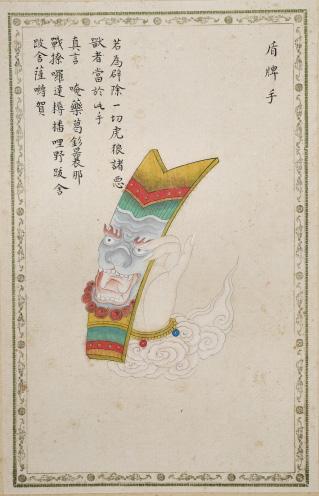 盾牌手
若為辟除一切虎狼諸惡
獸者當於此手
真言 唵藥葛釤曩那
戰捺囉達耨播哩野跋舍
跋舍薩嚩賀